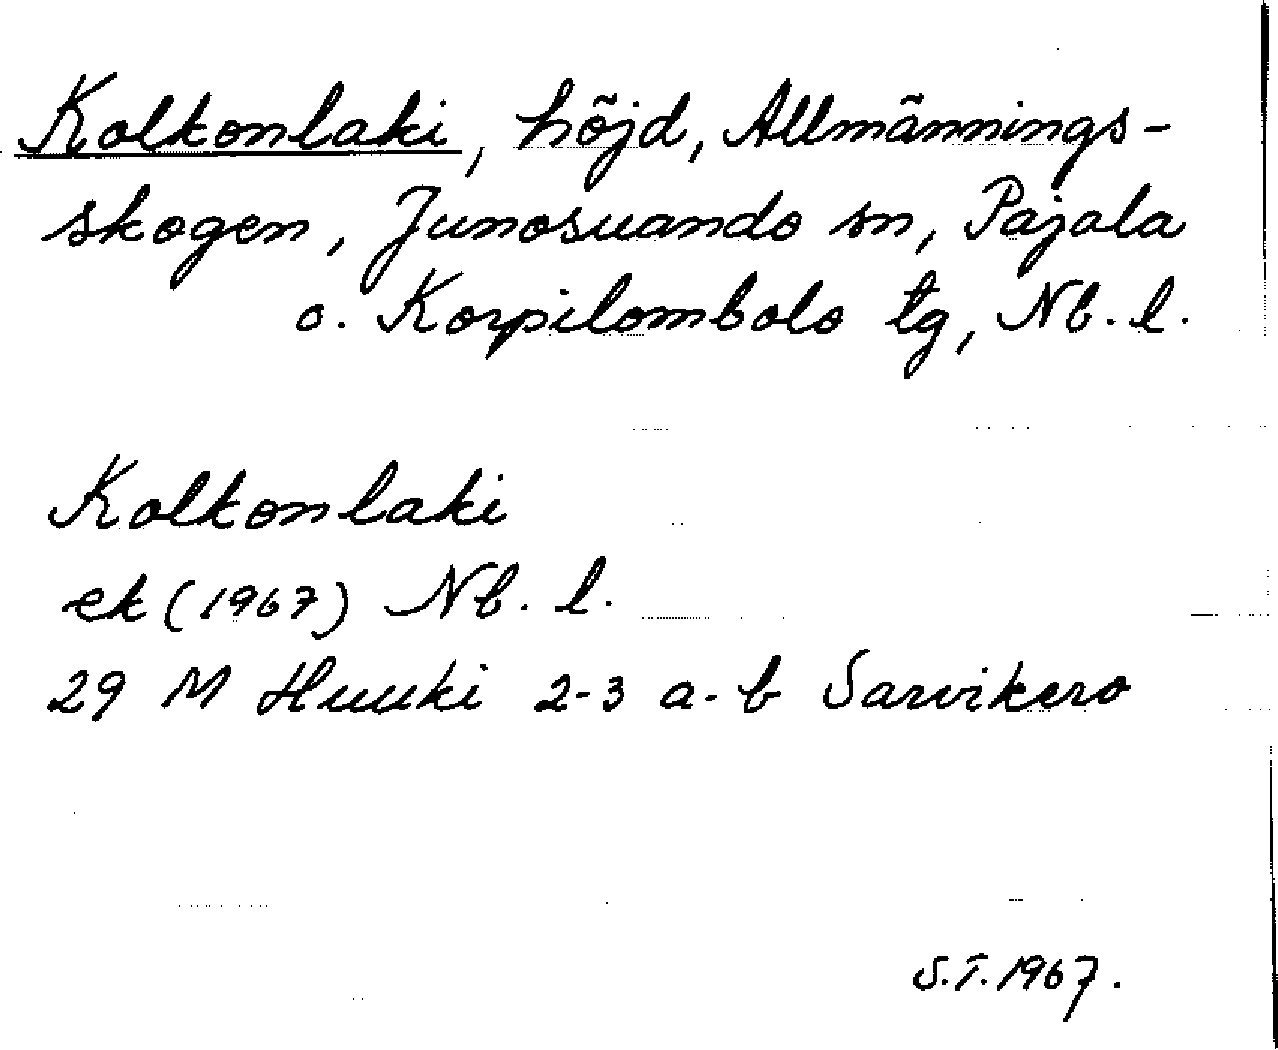 Kolkonlaki, höjd, Allmännings-
skogen, Junosuando sn, Pajala
o. Korpilombolo tg, Nb. l.
Kolkonlaki
ek (1967) Nb. l.
29 M Huuki 2-3 a-b Sarvikero
S.T. 1967.